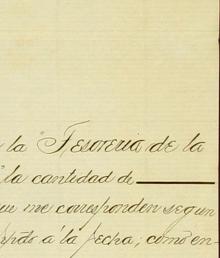 la Tesoreria de la
la cantidad de
me corresponden segun
á la fecha, como en-